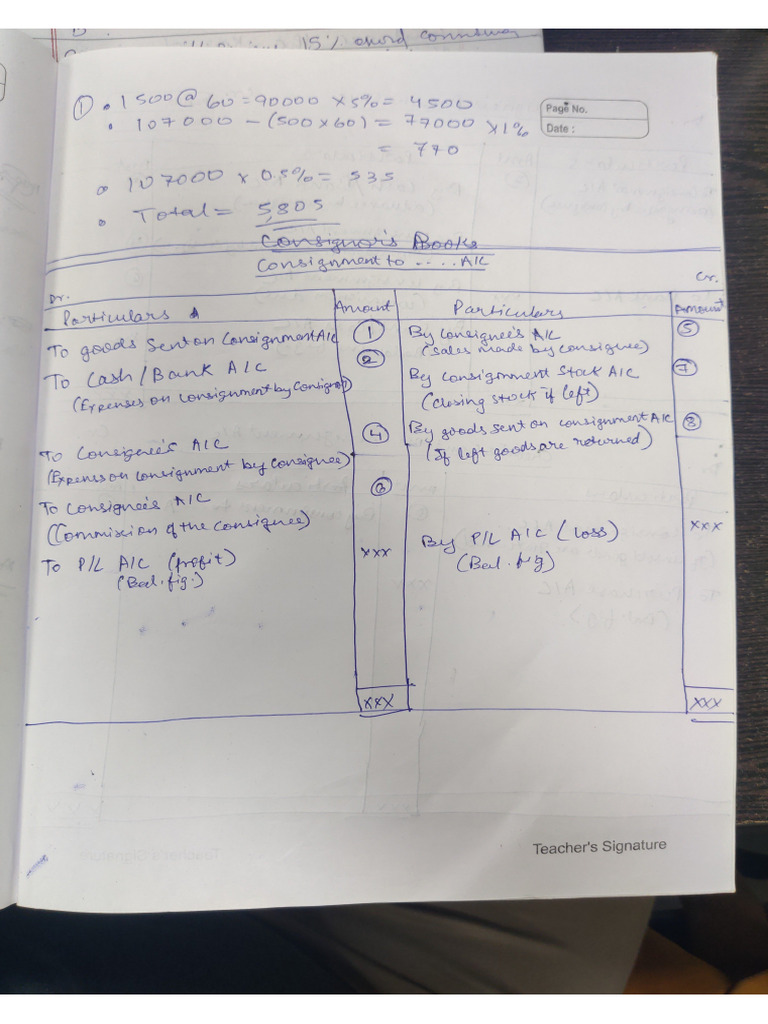 15% overd commission
① • 1500 @ 60 = 90000 × 5% = 4500
• 107000 - (500×60) = 77000 × 1%
= 770
• 107000 × 0.5% = 535
• Total = 5,805
Page No.
Date :
Consignor's Books
Consignment to ..... A/C
Dr.
Cr.
Particulars Amount Particulars Amount
To goods sent on Consignment A/C ① By Consignee's A/C ⑤
(Sales made by consignee)
To Cash / Bank A/C ② By Consignment Stock A/C ⑦
(Expenses on consignment by Consignor) (closing stock if left)
By goods sent on consignment A/C ⑧
To Consignee's A/C ④ (If left goods are returned)
(Expenses on consignment by Consignee)
To Consignee's A/C ⑥
(Commission of the Consignee) By P/L A/C (loss) xxx
To P/L A/C (profit) xxx (Bal. fig)
(Bal. fig.)
xxx xxx
Teacher's Signature